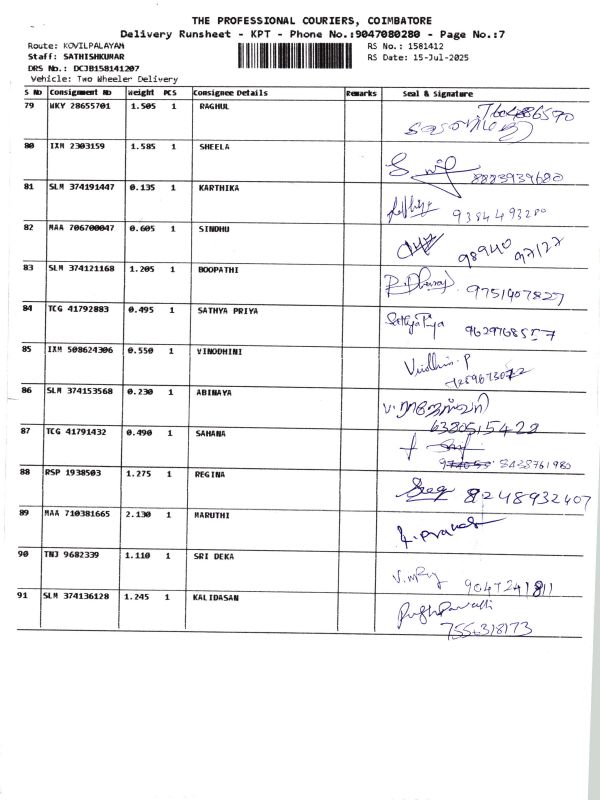 THE PROFESSIONAL COURIERS, COIMBATORE
Delivery Runsheet - KPT - Phone No.:9047080280 - Page No.:7
Route: KOVILPALAYAM RS No.: 1581412
Staff: SATHISHKUMAR RS Date: 15-Jul-2025
DRS No.: DCJB158141207
Vehicle: Two Wheeler Delivery
S No Consignment No Weight PCS Consignee Details Remarks Seal & Signature
79 WKY 28655701 1.505 1 RAGHUL
80 IXM 2303159 1.585 1 SHEELA
8883939680
81 SLM 374191447 0.135 1 KARTHIKA
9384493280
82 MAA 706700047 0.605 1 SINDHU
98940 97127
83 SLM 374121168 1.205 1 BOOPATHI
9751907827
84 TCG 41792883 0.495 1 SATHYA PRIYA
SathyaPriya 9629768557
85 IXM 508624306 0.550 1 VINODHINI
86 SLM 374153568 0.230 1 ABINAYA
6380515428
87 TCG 41791432 0.490 1 SAHANA
9438761980
88 RSP 1938503 1.275 1 REGINA
8248932407
89 MAA 710381665 2.130 1 MARUTHI
90 TNJ 9682339 1.110 1 SRI DEKA
9047241811
91 SLM 374136128 1.245 1 KALIDASAN